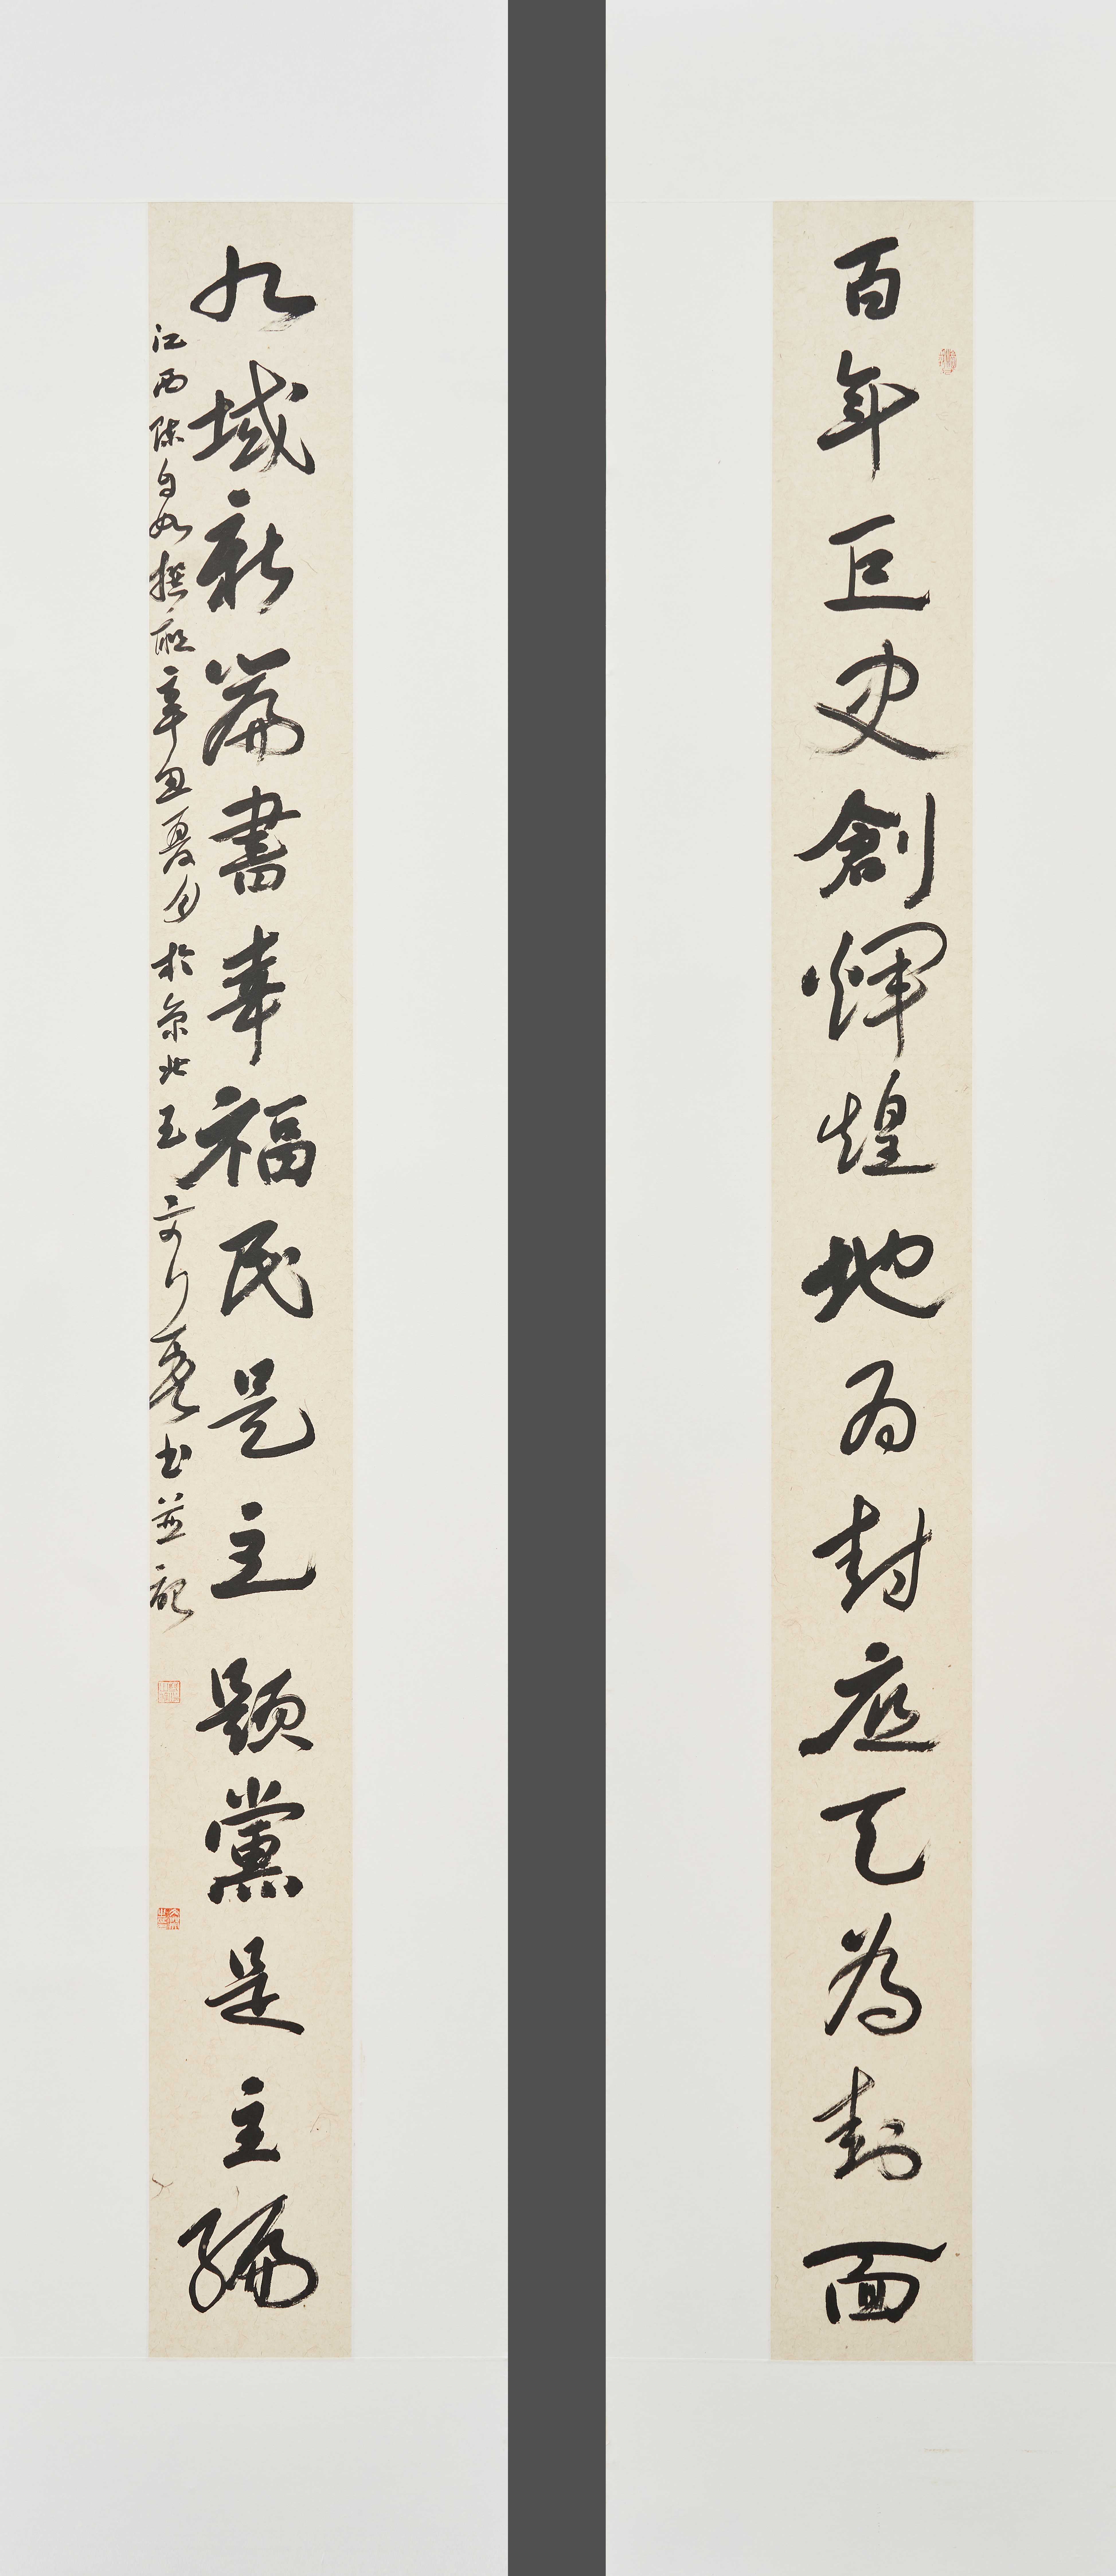 百年巨史創輝煌地為封底天為封面
九域新篇書幸福民是主題黨是主編
江西陳自如撰聯辛丑夏月於京北玉
書並記